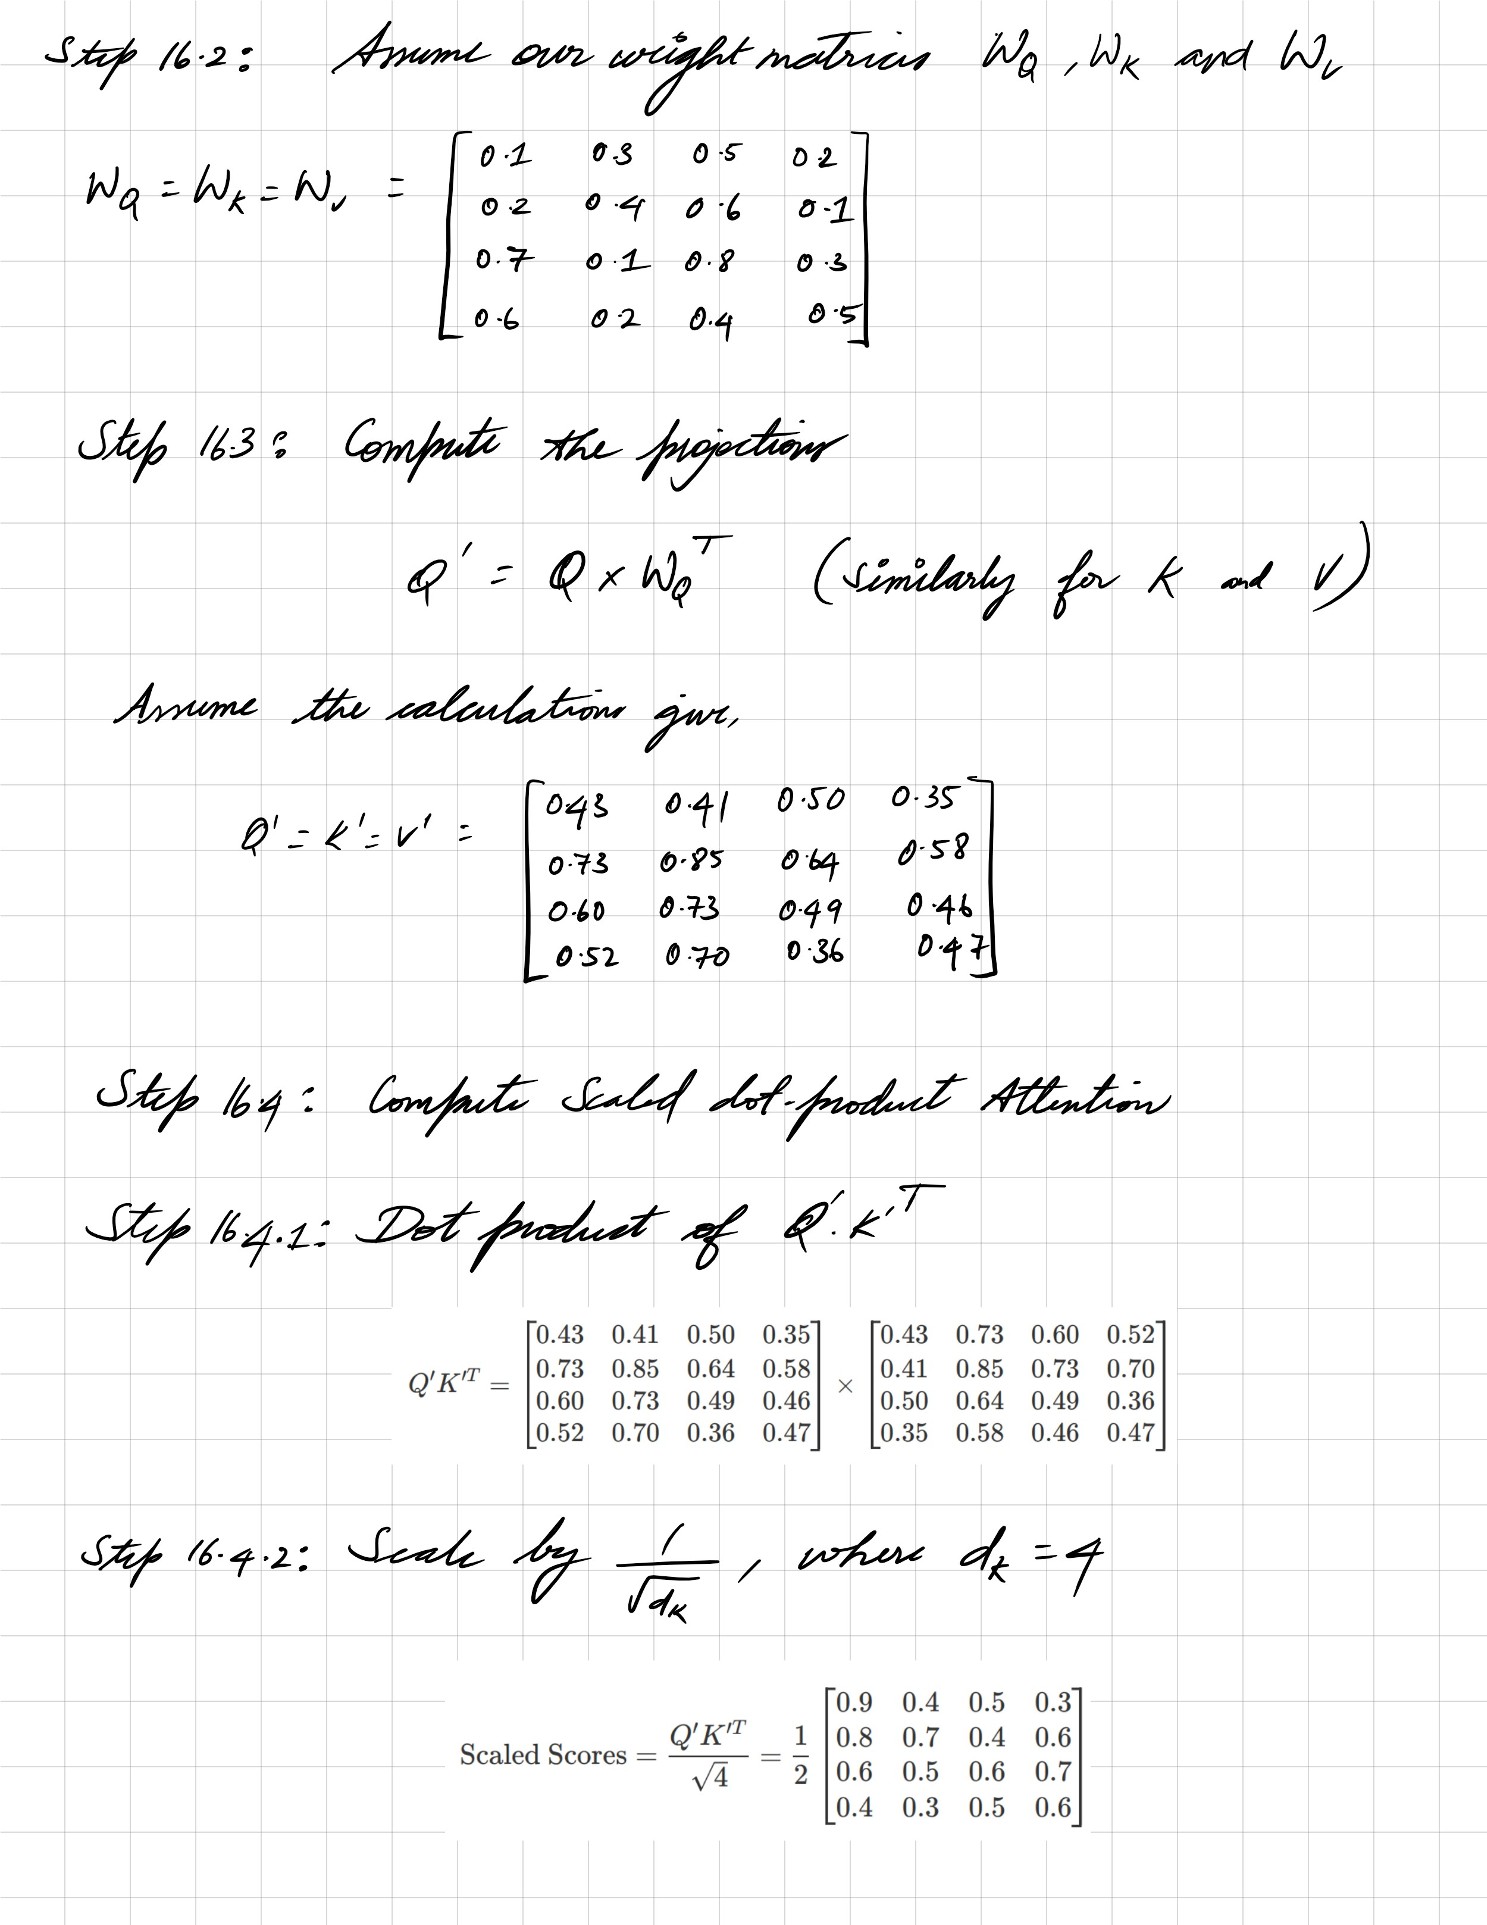 Step 16.2: Assume our weight matrices W_Q, W_K and W_V
W_Q = W_K = W_V = [0.1 0.3 0.5 0.2
0.2 0.4 0.6 0.1
0.7 0.1 0.8 0.3
0.6 0.2 0.4 0.5]
Step 16.3: Compute the projections
Q' = Q × W_Q^T (similarly for K and V)
Assume the calculations give,
Q' = K' = V' = [0.43 0.41 0.50 0.35
0.73 0.85 0.64 0.58
0.60 0.73 0.49 0.46
0.52 0.70 0.36 0.47]
Step 16.4: Compute Scaled dot-product Attention
Step 16.4.1: Dot product of Q'.K'^T
Q'K'^T = [0.43 0.41 0.50 0.35 × [0.43 0.73 0.60 0.52
0.73 0.85 0.64 0.58 0.41 0.85 0.73 0.70
0.60 0.73 0.49 0.46 0.50 0.64 0.49 0.36
0.52 0.70 0.36 0.47] 0.35 0.58 0.46 0.47]
Step 16.4.2: Scale by 1/√d_K, where d_k = 4
Scaled Scores = Q'K'^T/√4 = 1/2 [0.9 0.4 0.5 0.3
0.8 0.7 0.4 0.6
0.6 0.5 0.6 0.7
0.4 0.3 0.5 0.6]